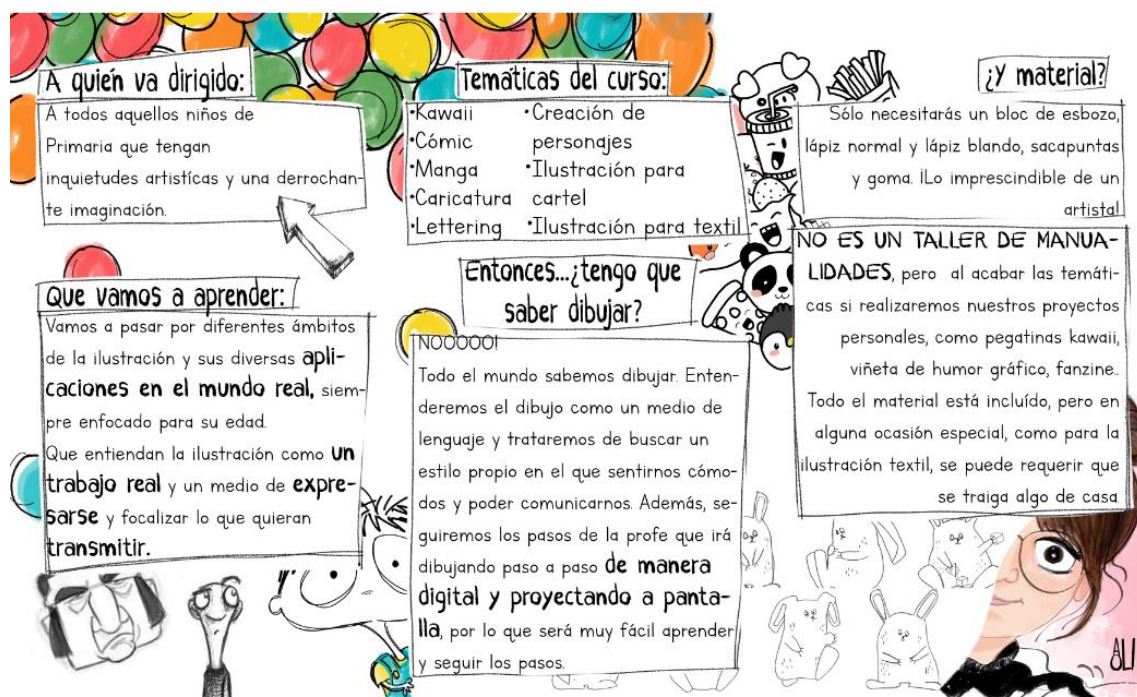 A quién va dirigido:
A todos aquellos niños de
Primaria que tengan
inquietudes artistícas y una derrochan-
te imaginación.
Que vamos a aprender:
Vamos a pasar por diferentes ámbitos
de la ilustración y sus diversas apli-
caciones en el mundo real, siem-
pre enfocado para su edad.
Que entiendan la ilustración como un
trabajo real y un medio de expre-
sarse y focalizar lo que quieran
transmitir.
Temáticas del curso:
•Kawaii
•Cómic
•Manga
•Caricatura
•Lettering
•Creación de
personajes
•Ilustración para
cartel
•Ilustración para textil
Entonces...¿tengo que
saber dibujar?
NOOOOO!
Todo el mundo sabemos dibujar. Enten-
deremos el dibujo como un medio de
lenguaje y trataremos de buscar un
estilo propio en el que sentirnos cómo-
dos y poder comunicarnos. Además, se-
guiremos los pasos de la profe que irá
dibujando paso a paso de manera
digital y proyectando a panta-
lla, por lo que será muy fácil aprender
y seguir los pasos.
¿Y material?
Sólo necesitarás un bloc de esbozo,
lápiz normal y lápiz blando, sacapuntas
y goma. ¡Lo imprescindible de un
artista!
NO ES UN TALLER DE MANUA-
LIDADES, pero al acabar las temáti-
cas si realizaremos nuestros proyectos
personales, como pegatinas kawaii,
viñeta de humor gráfico, fanzine..
Todo el material está incluído, pero en
alguna ocasión especial, como para la
ilustración textil, se puede requerir que
se traiga algo de casa.
ALI